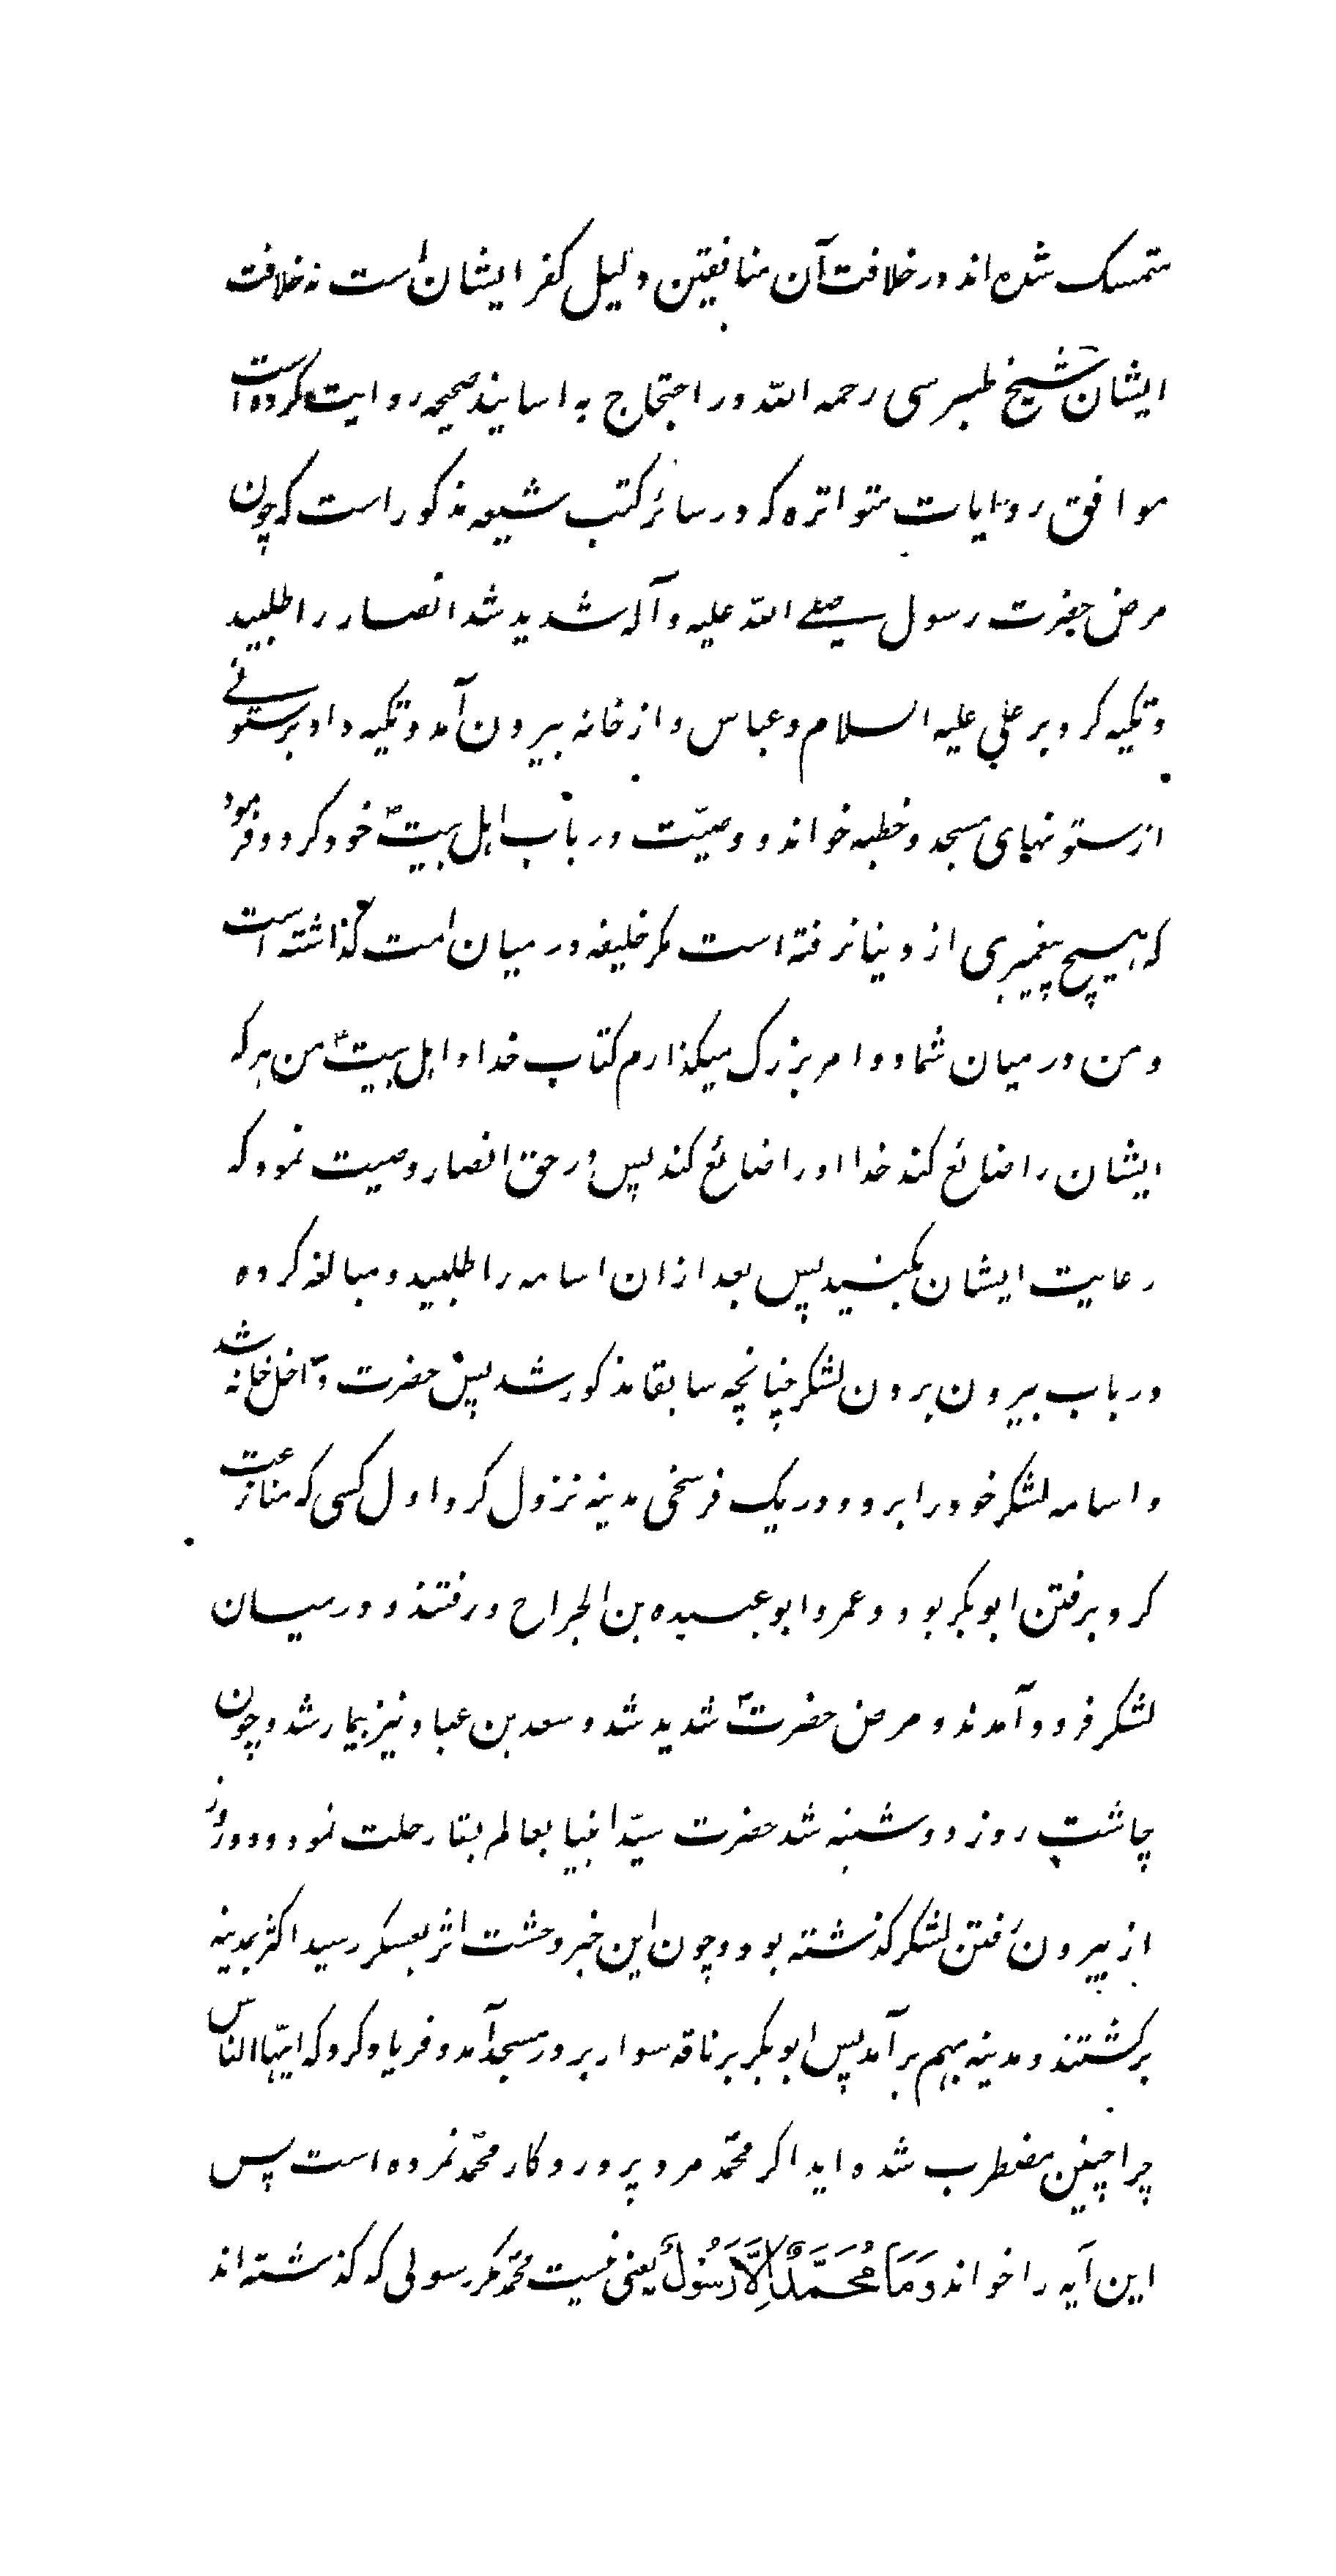 متمسک شده اند در خلافت آن منافقین دلیل کفر ایشان است نه خلافت
ایشان شیخ طبرسی رحمه الله در احتجاج به اسانید صحیحه روایت کرده است
موافق روایات متواتره که در سائر کتب شیعه مذکور است که چون
مرض حضرت رسول صلے الله علیه و آله شدید شد انصار را طلبید
و تکیه کرد بر علی علیه السلام و عباس و از خانه بیرون آمد و تکیه داد بر ستونے
از ستونهای مسجد و خطبه خواند و وصیّت در باب اهل بیتؑ خود کرد و فرمود
که هیچ پیغمبری از دنیا نرفته است مکر خلیفه در میان امت کذاشته است
و من در میان شما دو امر بزرک میکذارم کتاب خدا و اهل بیتؑ من هر که
ایشان را ضائع کند خدا او را ضائع کند پس در حق انصار وصیت نمود که
رعایت ایشان بکنید پس بعد از ان اسامه را طلبید و مبالغه کرده
در باب بیرون بردن لشکر چنانچه سابقا مذکور شد پس حضرت داخل خانه شد
و اسامه لشکر خود را برد و در یک فرسخی مدینه نزول کرد اول کسی که منازعت
کرد برفتن ابو بکر بود و عمر و ابو عبیده بن الجراح و رفتند و در میان
لشکر فرود آمدند و مرض حضرتؐ شدید شد و سعد بن عباد نیز بیمار شد و چون
چاشت روز دوشنبه شد حضرت سیّد انبیا بعالم بقا رحلت نمود و دو روز
از بیرون رفتن لشکر کذشته بود و چون این خبر وحشت اثر بعسکر رسید اکثر بمدینه
برکشتند و مدینه بهم بر آمد پس ابو بکر بر ناقه سوار بر در مسجد آمد و فریاد کرد که ایّها الناس
چرا چنین مضطرب شده اید اکر محمّد مرد پروردکار محمّد نمرده است پس
این آیه را خواند وَمَا مُحَمَّدٌ اِلَّا رَسُوْلٌ یعنی نیست محمّد مکر رسولی که کذشته اند